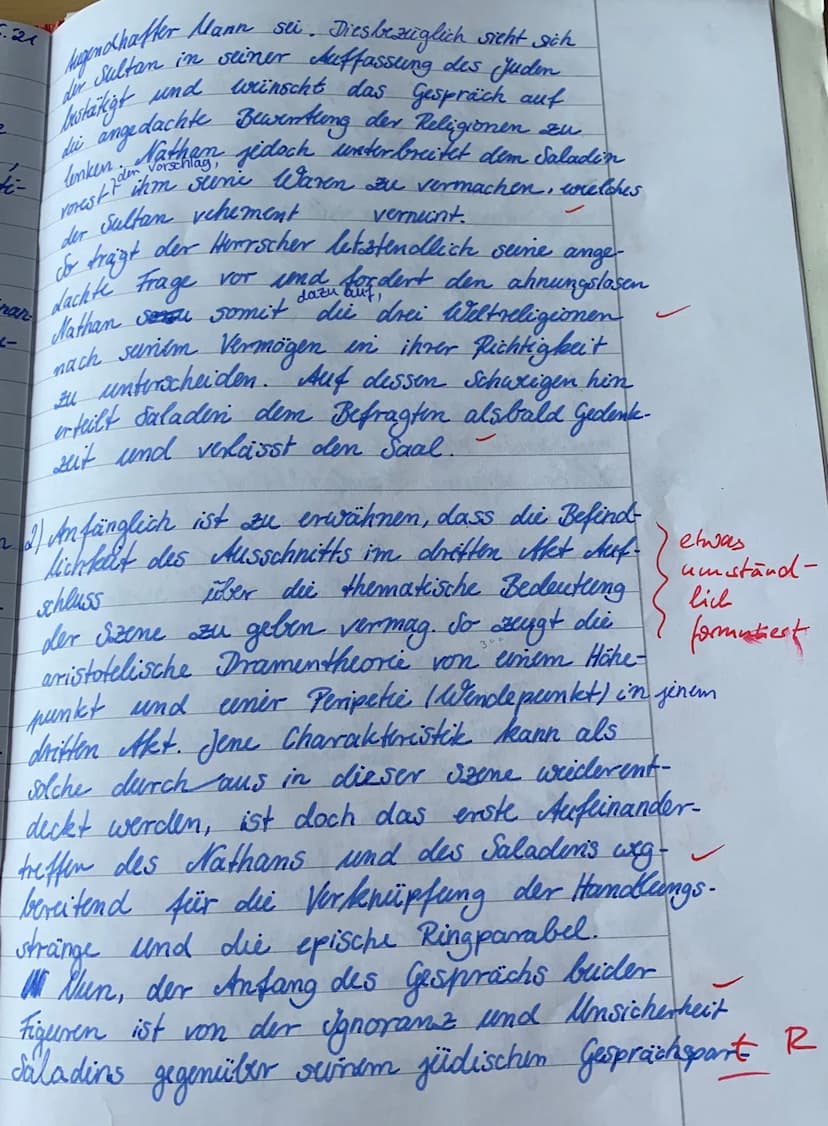 tugendhafter Mann sei. Diesbezüglich sieht sich
der Sultan in seiner Auffassung des Juden
bestätigt und wünscht das Gespräch auf
die angedachte Bewertung der Religionen zu
lenken. Nathan jedoch unterbreitet dem Saladin
den Vorschlag,
vorest ihm seine Waren zu vermachen, welches
der Sultan vehement verneint.
So trägt der Herrscher letztendlich seine ange-
dachte Frage vor und fordert den ahnungslosen
dazu auf,
Nathan somit die drei Weltreligionen
nach seinem Vermögen in ihrer Richtigkeit
zu unterscheiden. Auf dessen Schweigen hin
erteilt Saladin dem Befragten alsbald Gedenk-
zeit und verlässt den Saal.
2) Anfänglich ist zu erwähnen, dass die Befind-
lichkeit des Ausschnitts im dritten Akt Auf-
schluss über die thematische Bedeutung
der Szene zu geben vermag. So zeugt die
aristotelische Dramentheorie von einem Höhe-
punkt und einer Peripetie (Wendepunkt) in jenem
dritten Akt. Jene Charakteristik kann als
solche durchaus in dieser Szene wiederent-
deckt werden, ist doch das erste Aufeinander-
treffen des Nathans und des Saladins weg-
bereitend für die Verknüpfung der Handlungs-
stränge und die epische Ringparabel.
Nun, der Anfang des Gesprächs beider
Figuren ist von der Ignoranz und Unsicherheit
Saladins gegenüber seinem jüdischen Gesprächspart
etwas
umständ-
lich
formuliert
R